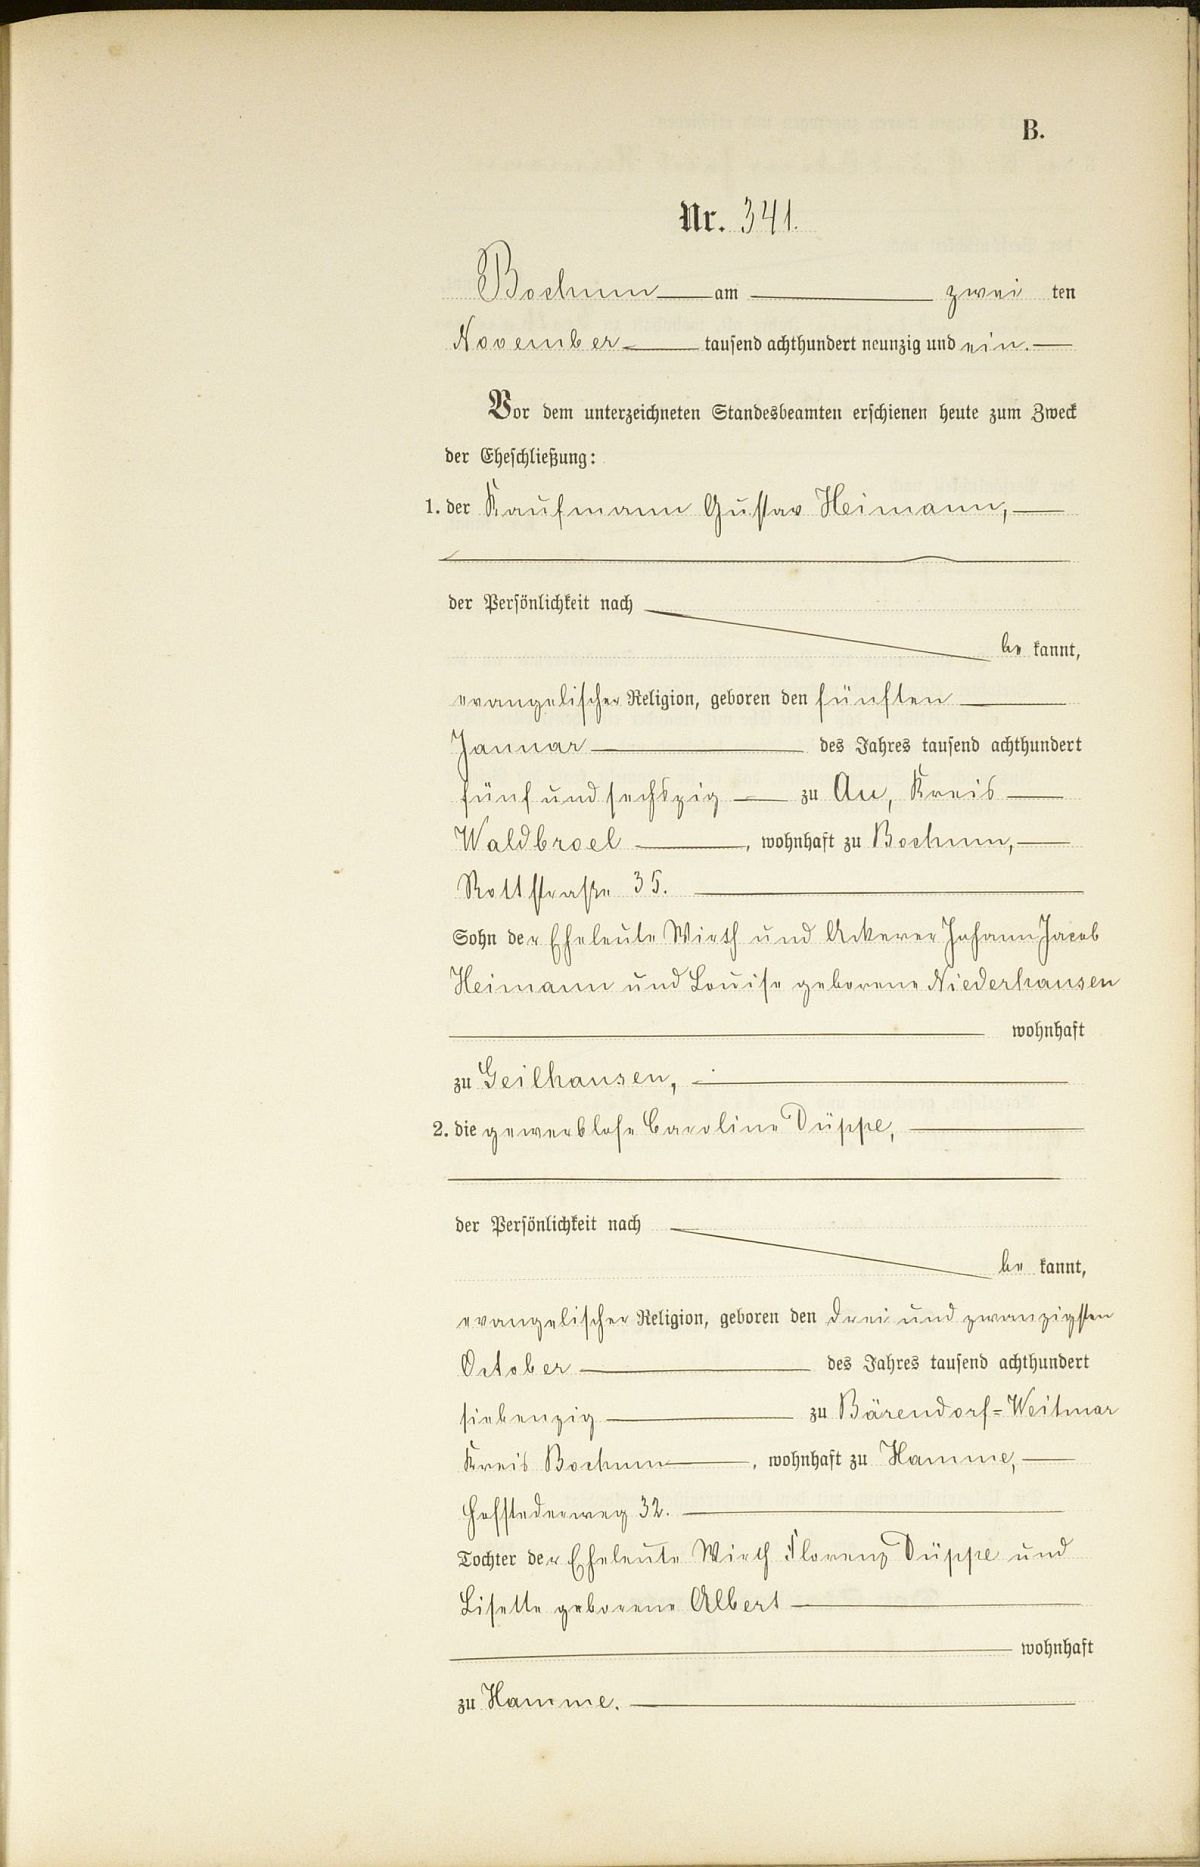 B.
Nr. 341.
Bochum am zwei ten
November tausend achthundert neunzig und ein.
Vor dem unterzeichneten Standesbeamten erschienen heute zum Zweck
der Eheschließung:
1. der Kaufmann Gustav Heimann,
der Persönlichkeit nach
be kannt,
evangelischer Religion, geboren den fünften
Januar des Jahres tausend achthundert
fünf und sechszig zu Au, Kreis
Waldbroel, wohnhaft zu Bochum,
Rottstraße 35.
Sohn der Eheleute Wirth und Ackerer Johann Jacob
Heimann und Louise geborene Niederhausen
wohnhaft
zu Geilhausen,
2. die gewerblose Caroline Düppe,
der Persönlichkeit nach
be kannt,
evangelischer Religion, geboren den drei und zwanzigsten
October des Jahres tausend achthundert
siebenzig zu Bärendorf=Weitmar
Kreis Bochum, wohnhaft zu Hamme,
Hofstederweg 32.
Tochter der Eheleute Wirth Florenz Düppe und
Lisette geborene Albert
wohnhaft
zu Hamme.